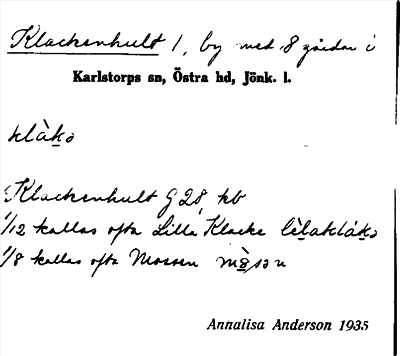 Klackenhult 1, by med 8 gårdar i
Karlstorps sn, Östra hd, Jönk. l.
klàkə
Klackenhult G 28, kb
1/12 kallas ofta Lilla Klacke lèlaklàkə
1/8 kallas ofta Mossen
Annalisa Anderson 1935